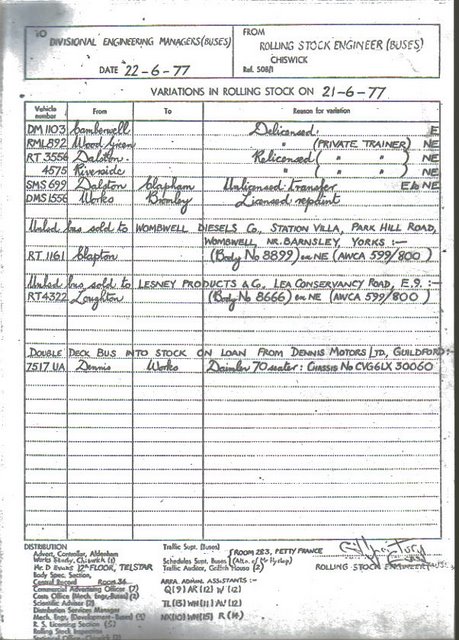 TO
DIVISIONAL ENGINEERING MANAGERS (BUSES)
DATE 22-6-77
FROM
ROLLING STOCK ENGINEER (BUSES)
CHISWICK
Ref. 508/1
VARIATIONS IN ROLLING STOCK ON 21-6-77
Vehicle number From To Reason for variation
DM 1103 Camberwell Delicensed E
RML892 Wood Green " (PRIVATE TRAINER) NE
RT 3556 Dalston. Relicensed ( " " ) NE
4575 Riverside " ( " " ) NE
SMS 699 Dalston Clapham Unlicensed transfer E to NE
DMS 1556 Works Bromley Licensed repaint
Unlsd bus sold to WOMBWELL DIESELS Co, STATION VILLA, PARK HILL ROAD,
WOMBWELL, NR. BARNSLEY, YORKS :—
RT 1161 Clapton (Body No 8899) ex NE (AWCA 599/800)
Unlsd bus sold to LESNEY PRODUCTS & Co, LEA CONSERVANCY ROAD, E.9. :—
RT4322 Loughton (Body No 8666) ex NE (AWCA 599/800)
DOUBLE DECK BUS INTO STOCK ON LOAN FROM DENNIS MOTORS LTD, GUILDFORD:-
7517 UA Dennis Works Daimler 70 seater: CHASSIS No CVG6LX 30060
DISTRIBUTION
Advert. Controller, Aldenham
Works Study, Chiswick (1)
Mr. D 12th FLOOR, TELSTAR
Body Spec. Section,
Central Record ROOM 36
Commercial Advertising Officer (7)
Costs Office (Mech. Engr. Buses) (2)
Scientific Adviser (2)
Distribution Services Manager
Mech. Engr. (Development - Buses) (1)
R. S. Licensing Section (5)
Rolling Stock Inspection
Traffic Supt. (Buses) ROOM 283, PETTY FRANCE
Schedules Supt. (Buses) (Attn. of Mr Hyslop)
Traffic Auditor, Griffith House (2)
AREA ADMIN. ASSISTANTS :-
Q (9) AR (12) W (12)
TL (13) WH (11) AV (12)
NX (10) WN (15) R (14)
ROLLING STOCK ENGINEER (BUSES)